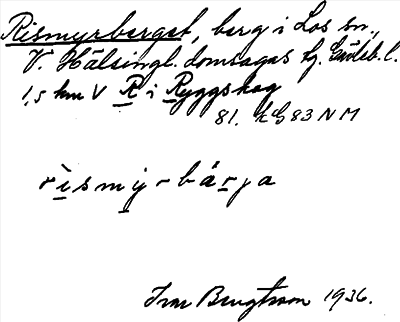 Rismyrberget, berg i Los sn.,
V. Hälsingl. domsagas tg. Gävleb. l.
1,5 km V R i Ryggskog
81. kG 83 N M
rismyrbärja
Ivar Bengtsson 1936.